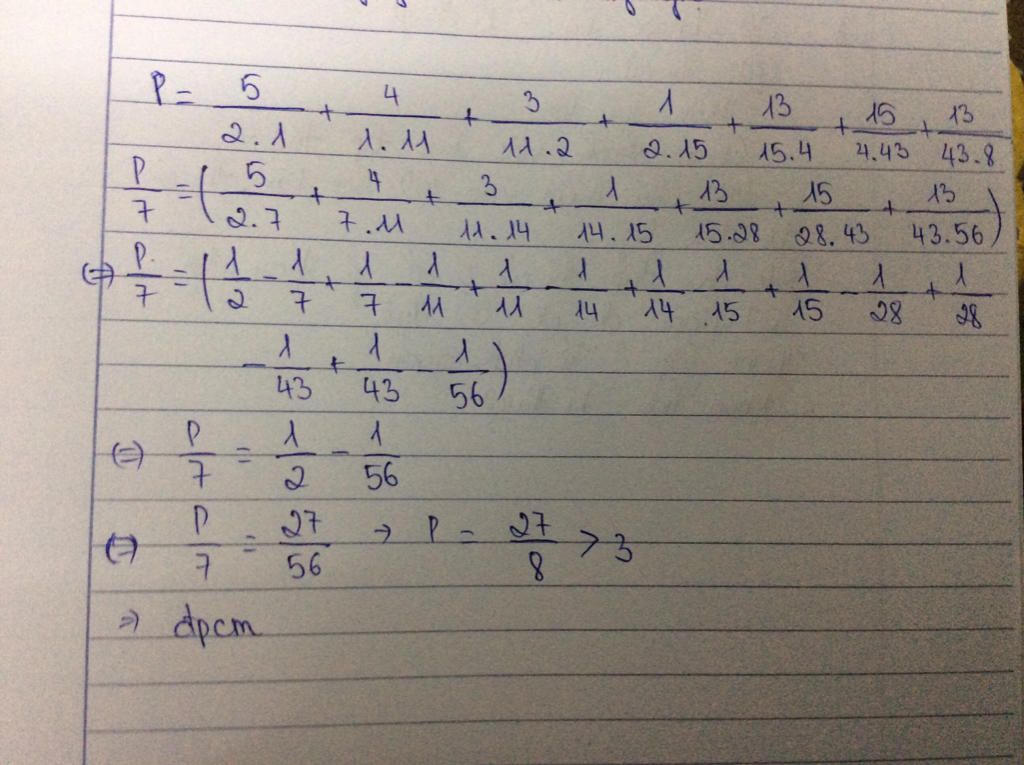 P = 5/2.1 + 4/1.11 + 3/11.2 + 1/2.15 + 13/15.4 + 15/4.43 + 13/43.8
P/7 = (5/2.7 + 4/7.11 + 3/11.14 + 1/14.15 + 13/15.28 + 15/28.43 + 13/43.56)
(=) P/7 = (1/2 - 1/7 + 1/7 - 1/11 + 1/11 - 1/14 + 1/14 - 1/15 + 1/15 - 1/28 + 1/28
- 1/43 + 1/43 - 1/56)
(=) P/7 = 1/2 - 1/56
(=) P/7 = 27/56 → P = 27/8 > 3
⇒ đpcm